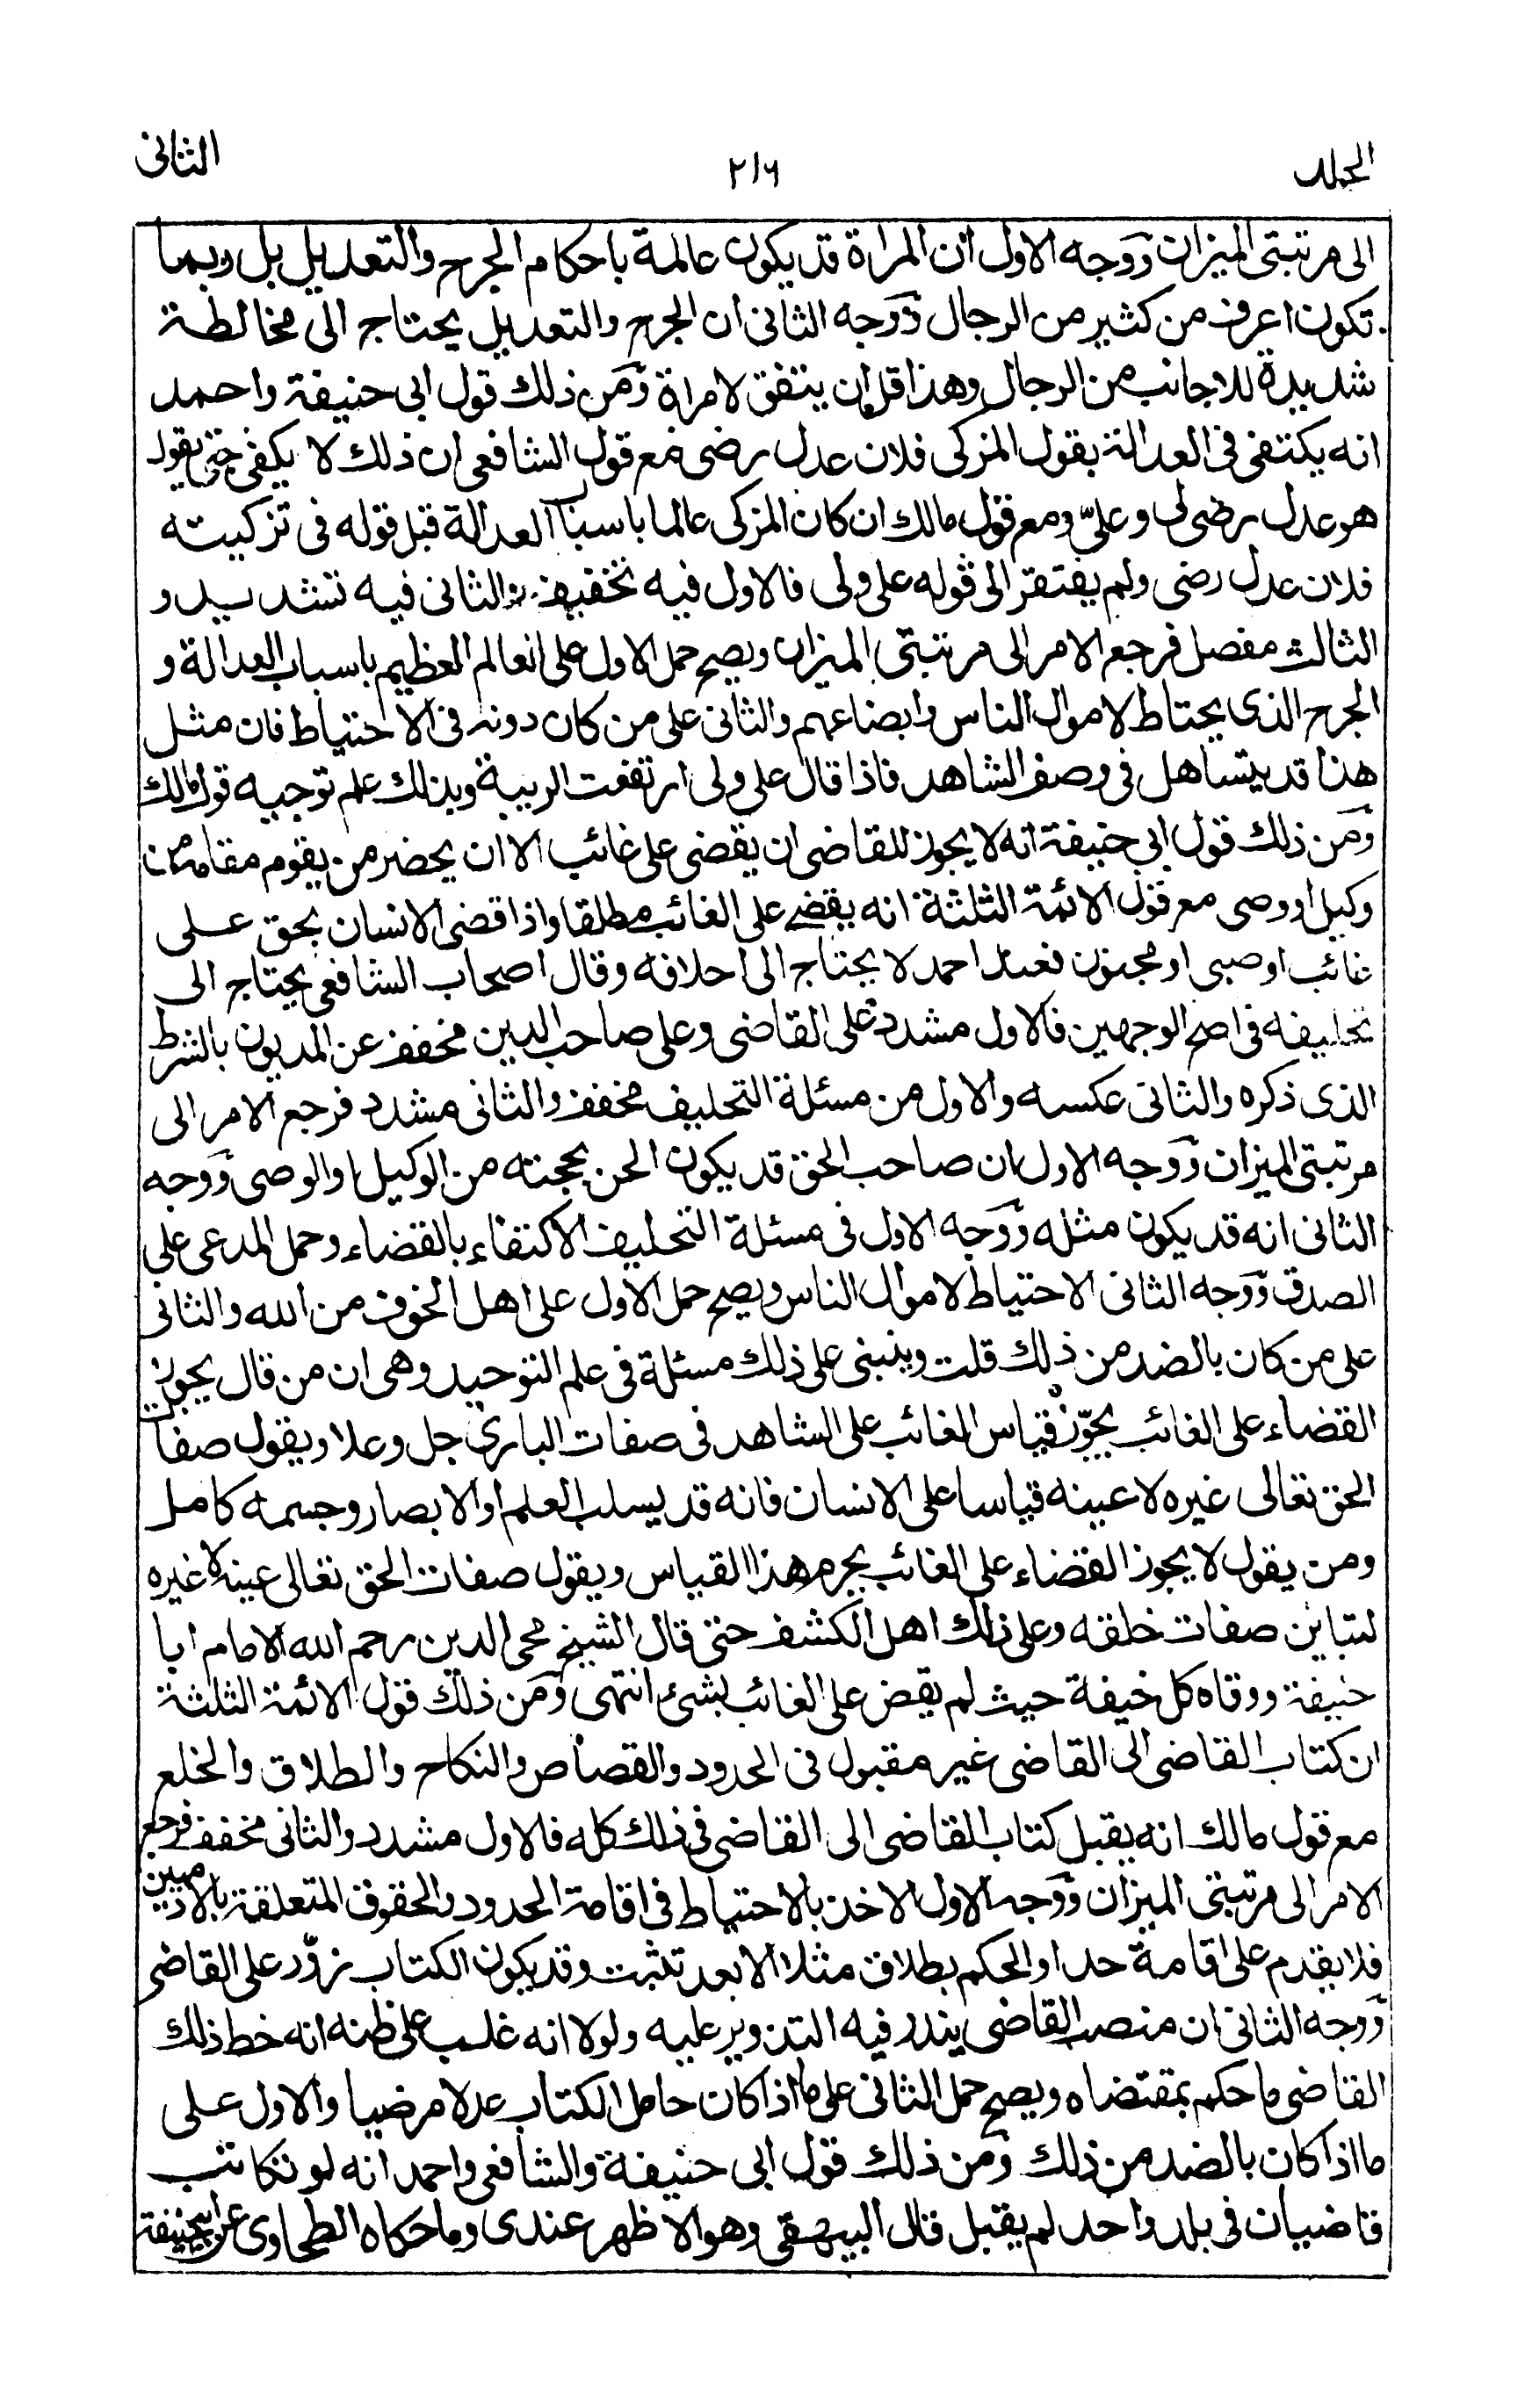 الجلد
٢١٦
الثانى
الى مرتبتى الميزان ووجه الاول ان المراة قد يكون عالمة باحكام الجرح والتعديل بل وربما
تكون اعرف من كثير من الرجال ووجه الثانى ان الجرح والتعديل يحتاج الى مخالطة
شديدة للاجانب من الرجال وهذا قل ان يتفق لامراة ومن ذلك قول ابى حنيفة واحمد
انه يكتفى فى العدالة بقول المزكى فلان عدل رضى مع قول الشافعى ان ذلك لا يكفى حتى يقول
هو عدل رضى لى وعلىّ ومع قول مالك ان كان المزكى عالما باسباب العدالة قبل قوله فى تزكيته
فلان عدل رضى ولم يفتقر الى قوله على ولى فالاول فيه تخفيف والثانى فيه تشديد و
الثالث مفصل فرجع الامر الى مرتبتى الميزان ويصح حمل الاول على العالم العظيم باسباب العدالة و
الجرح الذى يحتاط لاموال الناس وابضاعهم والثانى على من كان دونه فى الاحتياط فان مثل
هذا قد يتساهل فى وصف الشاهد فاذا قال على ولى ارتفعت الريبة وبذلك علم توجيه قول مالك
ومن ذلك قول ابى حنيفة انه لا يجوز للقاضى ان يقضى على غائب الا ان يحضر من يقوم مقامه من
وكيل او وصى مع قول الائمة الثلثة انه يقضى على الغائب مطلقا واذا قضى الانسان بحق على
غائب او صبى او مجنون فعند احمد لا يحتاج الى احلافه وقال اصحاب الشافعى يحتاج الى
تحليفه فى اصح الوجهين فالاول مشدد على القاضى وعلى صاحب الدين مخفف عن المديون بالشرط
الذى ذكره والثانى عكسه والاول من مسئلة التحليف مخفف والثانى مشدد فرجع الامر الى
مرتبتى الميزان ووجه الاول ان صاحب الحق قد يكون الحن بحجته من الوكيل او الوصى ووجه
الثانى انه قد يكون مثله ووجه الاول فى مسئلة التحليف الاكتفاء بالقضاء وحمل المدعى على
الصدق ووجه الثانى الاحتياط لاموال الناس ويصح حمل الاول على اهل الخوف من الله والثانى
على من كان بالضد من ذلك قلت وينبنى على ذلك مسئلة فى علم التوحيد وهى ان من قال يجوز
القضاء على الغائب يجوّز قياس الغائب على الشاهد فى صفات البارى جل وعلا ويقول صفات
الحق تعالى غيره لا عينه قياسا على الانسان فانه قد يسلب العلم او الابصار وجسمه كامل
ومن يقول لا يجوز القضاء على الغائب يحرم هذا القياس ويقول صفات الحق تعالى عينه لا غيره
لتباين صفات خلقه وعلى ذلك اهل الكشف حتى قال الشيخ محى الدين رحم الله الامام ابا
حنيفة ووقاه كل خيفة حيث لم يقض على الغائب بشئ انتهى ومن ذلك قول الائمة الثلثة
ان كتاب القاضى الى القاضى غير مقبول فى الحدود والقصاص والنكاح والطلاق والخلع
مع قول مالك انه يقبل كتاب القاضى الى القاضى فى ذلك كله فالاول مشدد والثانى مخفف فرجع
الامر الى مرتبتى الميزان ووجه الاول الاخذ بالاحتياط فى اقامة الحدود والحقوق المتعلقة بالادميين
فلا يقدم على اقامة حد او الحكم بطلاق مثلا الا بعد تثبت وقد يكون الكتاب زوّر على القاضى
ووجه الثانى ان منصب القاضى يندر فيه التزوير عليه ولولا انه غلب على ظنه انه خط ذلك
القاضى ما حكم بمقتضاه ويصح حمل الثانى على ما اذا كان حامل الكتاب عدلا مرضيا والاول على
ما اذا كان بالضد من ذلك ومن ذلك قول ابى حنيفة والشافعى واحمد انه لو تكاتب
قاضيان فى بلد واحد لم يقبل قال البيهقى وهو الاظهر عندى وما حكاه الطحاوى عن ابى حنيفة